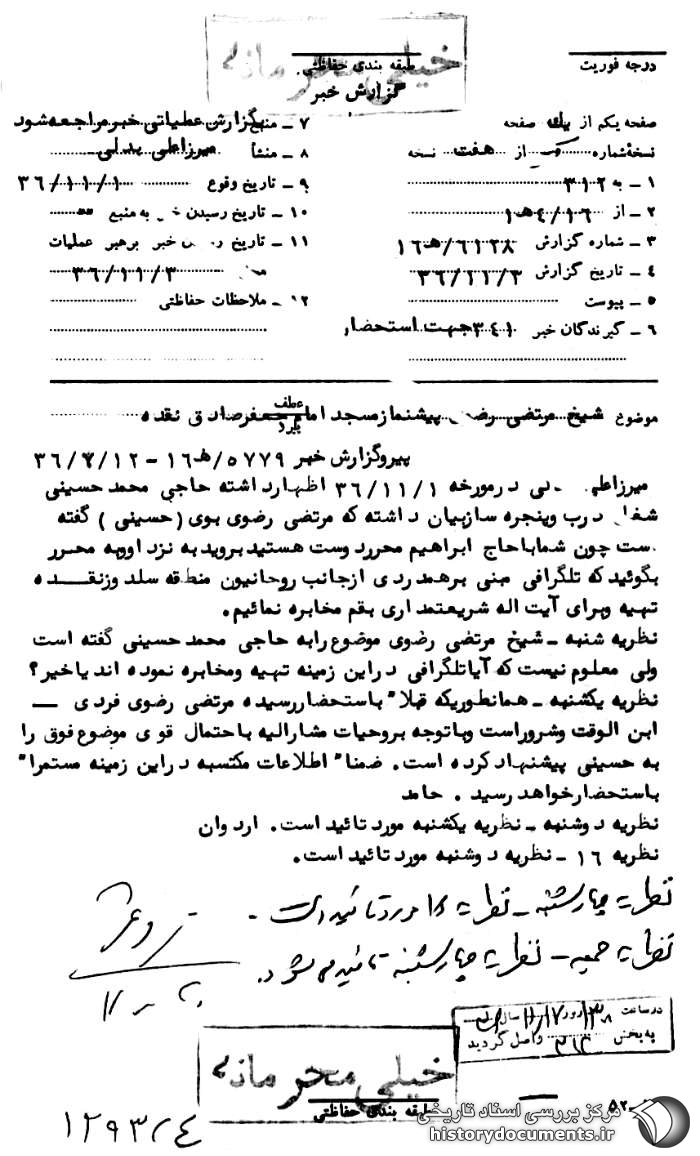 خیلی محرمانه
درجه فوریت
طبقه بندی حفاظتی
گزارش خبر
صفحه یکم از یک صفحه
نسخه شماره از هفت نسخه
۱ ـ به ۳۱۲
۲ ـ از ۱۶/۴هـ۱
۳ ـ شماره گزارش ۶۱۲۸/هـ۱۶
۴ ـ تاریخ گزارش ۳۶/۱۱/۳
۵ ـ پیوست
۶ ـ گیرندگان خبر ۳۴۱ جهت استحضار
۷ ـ منبع بگزارش عملیاتی خبر مراجعه شود
۸ ـ منشأ میرزاعلی بدلی
۹ ـ تاریخ وقوع ۳۶/۱۱/۱
۱۰ ـ تاریخ رسیدن به منبع
۱۱ ـ تاریخ خبر برهبر عملیات
۳۶/۱۱/۳
۱۲ ـ ملاحظات حفاظتی
موضوع شیخ مرتضی پیشنماز مسجد امام جعفر صادق نقده
عطف
پیرو
پیرو گزارش خبر ۵۷۷۹/هـ۱۶ ـ ۳۶/۷/۱۲
در مورخه ۳۶/۱۱/۱ اظهار داشته حاجی محمد حسینی
درب و پنجره ساز بیان داشته که مرتضی رضوی بوی (حسینی) گفته
است چون شما با حاج ابراهیم محرر دوست هستید بروید به نزد او و به محرر
بگوئید که تلگرافی مبنی بر همدردی از جانب روحانیون منطقه سلدوز نقده
تهیه و برای آیت اله شریعتمداری بقم مخابره نمائیم.
نظریه شنبه ـ شیخ مرتضی رضوی موضوع را به حاجی محمد حسینی گفته است
ولی معلوم نیست که آیا تلگرافی در این زمینه تهیه و مخابره نموده اند یا خیر؟
نظریه یکشنبه ـ همانطوریکه قبلاً باستحضار رسیده مرتضی رضوی فردی ـ
ابن الوقت و شرور است و با توجه بروحیات مشارالیه باحتمال قوی موضوع فوق را
به حسینی پیشنهاد کرده است. ضمناً اطلاعات مکتسبه در این زمینه مستمراً
باستحضار خواهد رسید . حامد
نظریه دوشنبه ـ نظریه یکشنبه مورد تائید است. اردوان
نظریه ۱۶ ـ نظریه دوشنبه مورد تائید است.
نظریه چهارشنبه ـ نظریه ۱۶ مورد تائید است ـ
نظریه جمعه ـ نظریه چهارشنبه تائید میشود.
در ساعت روز سال
به بخش ۳۱۲ واصل گردید
خیلی محرمانه
طبقه بندی حفاظتی
۵۲
۱۲۹۳/۴
مرکز بررسی اسناد تاریخی
historydocuments.ir